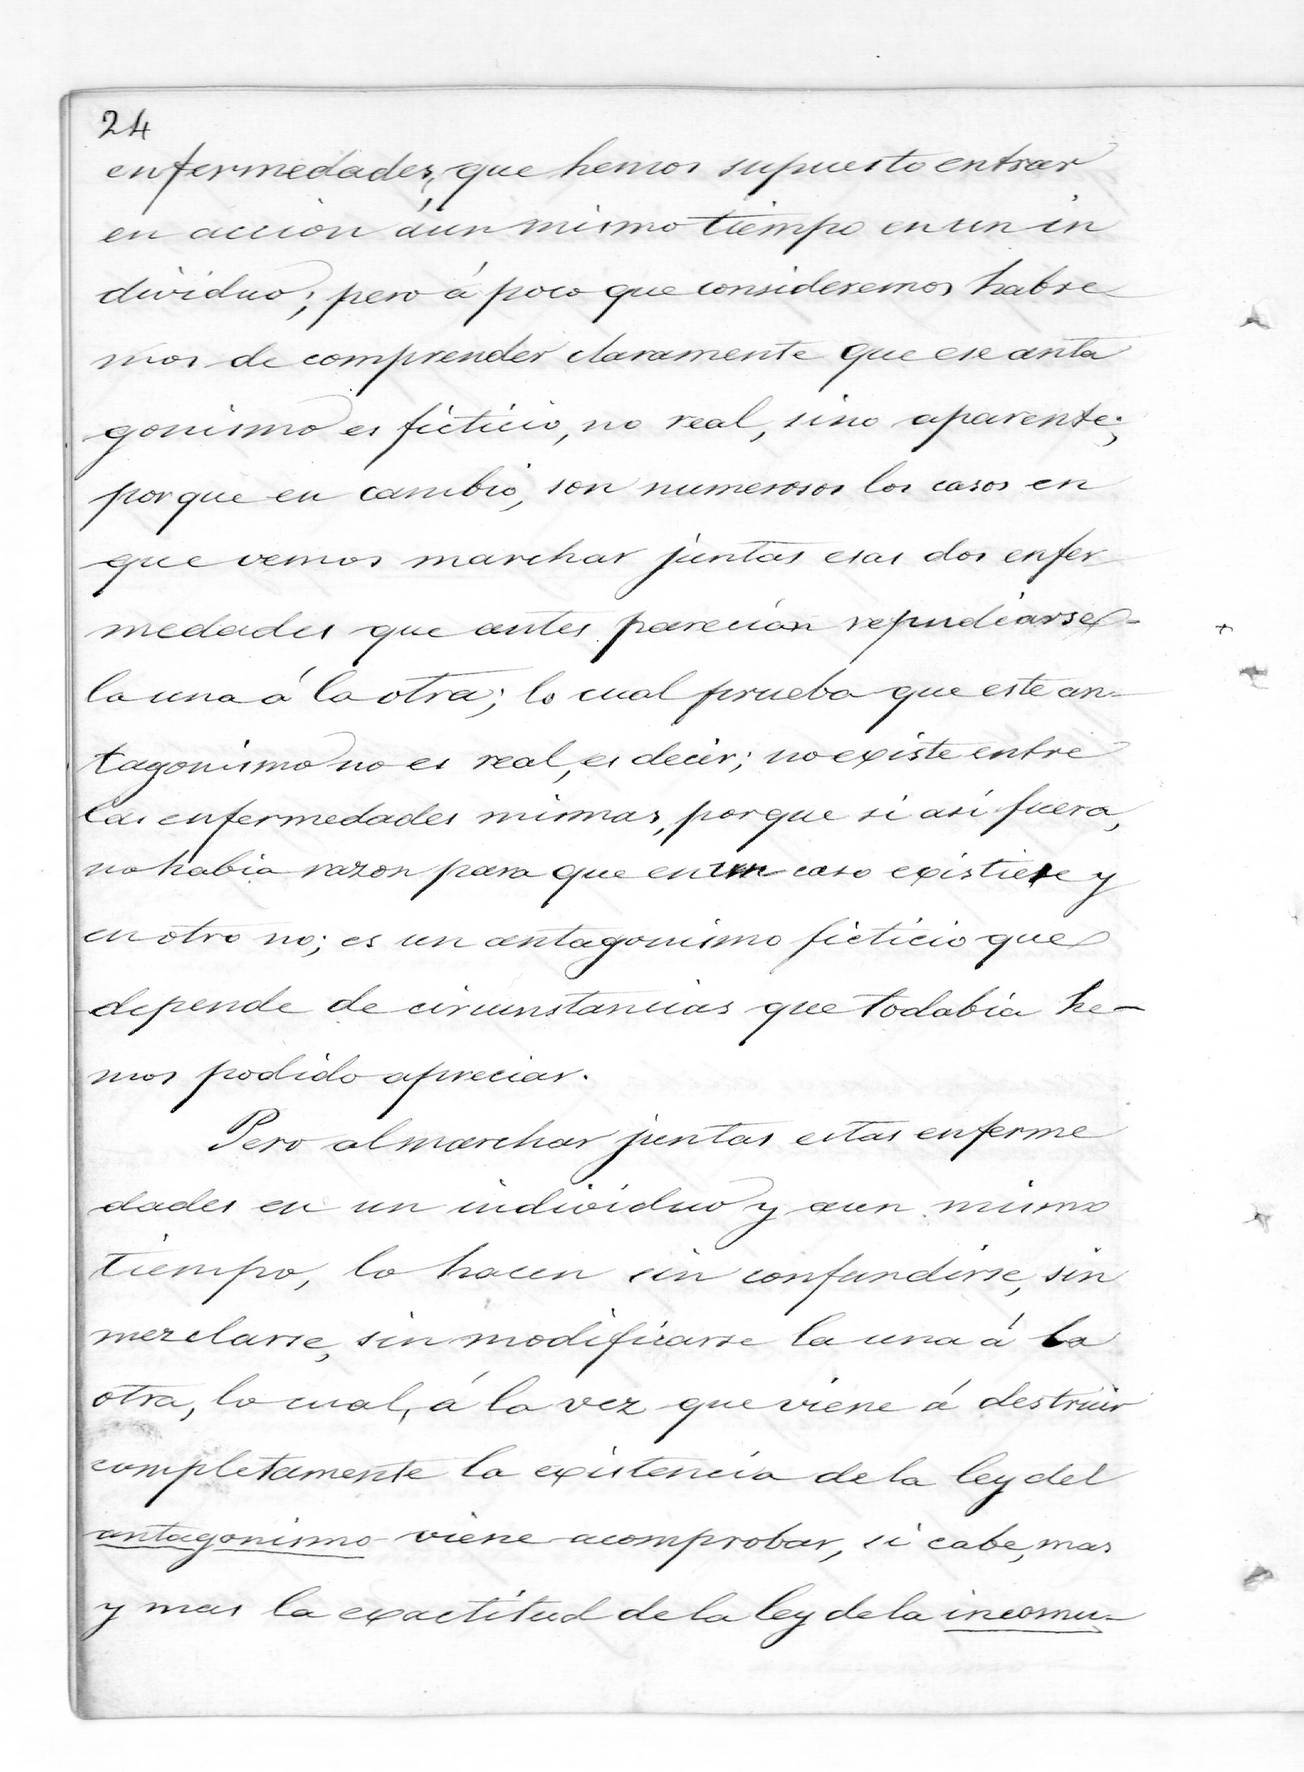 24
enfermedades, que hemos supuesto entrar
en accion áun mismo tiempo en un in
dividuo; pero á poco que consideremos habre
mos de comprender claramente que ese anta
gonismo es ficticio, no real, sino aparente;
porque en cambio, son numerosos los casos en
que vemos marchar juntas esas dos enfer
medades que antes parecian repudiarse
la una á la otra; lo cual prueba que este an-
tagonismo no es real, es decir; no existe entre
las enfermedades mismas, porque si asi fuera,
no habia razon para que en un caso existiese y
en otro no; es un antagonismo ficticio que
depende de circunstancias que todabia he-
mos podido apreciar.
Pero al marchar juntas estas enferme
dades en un individuo y aun mismo
tiempo, lo hacen sin confundirse, sin
mezclarse, sin modificarse la una á la
otra, lo cual, á la vez que viene á destruir
completamente la existencia de la ley del
antagonismo viene acomprobar, si cabe, mas
y mas la exactitud de la ley de la incomu-